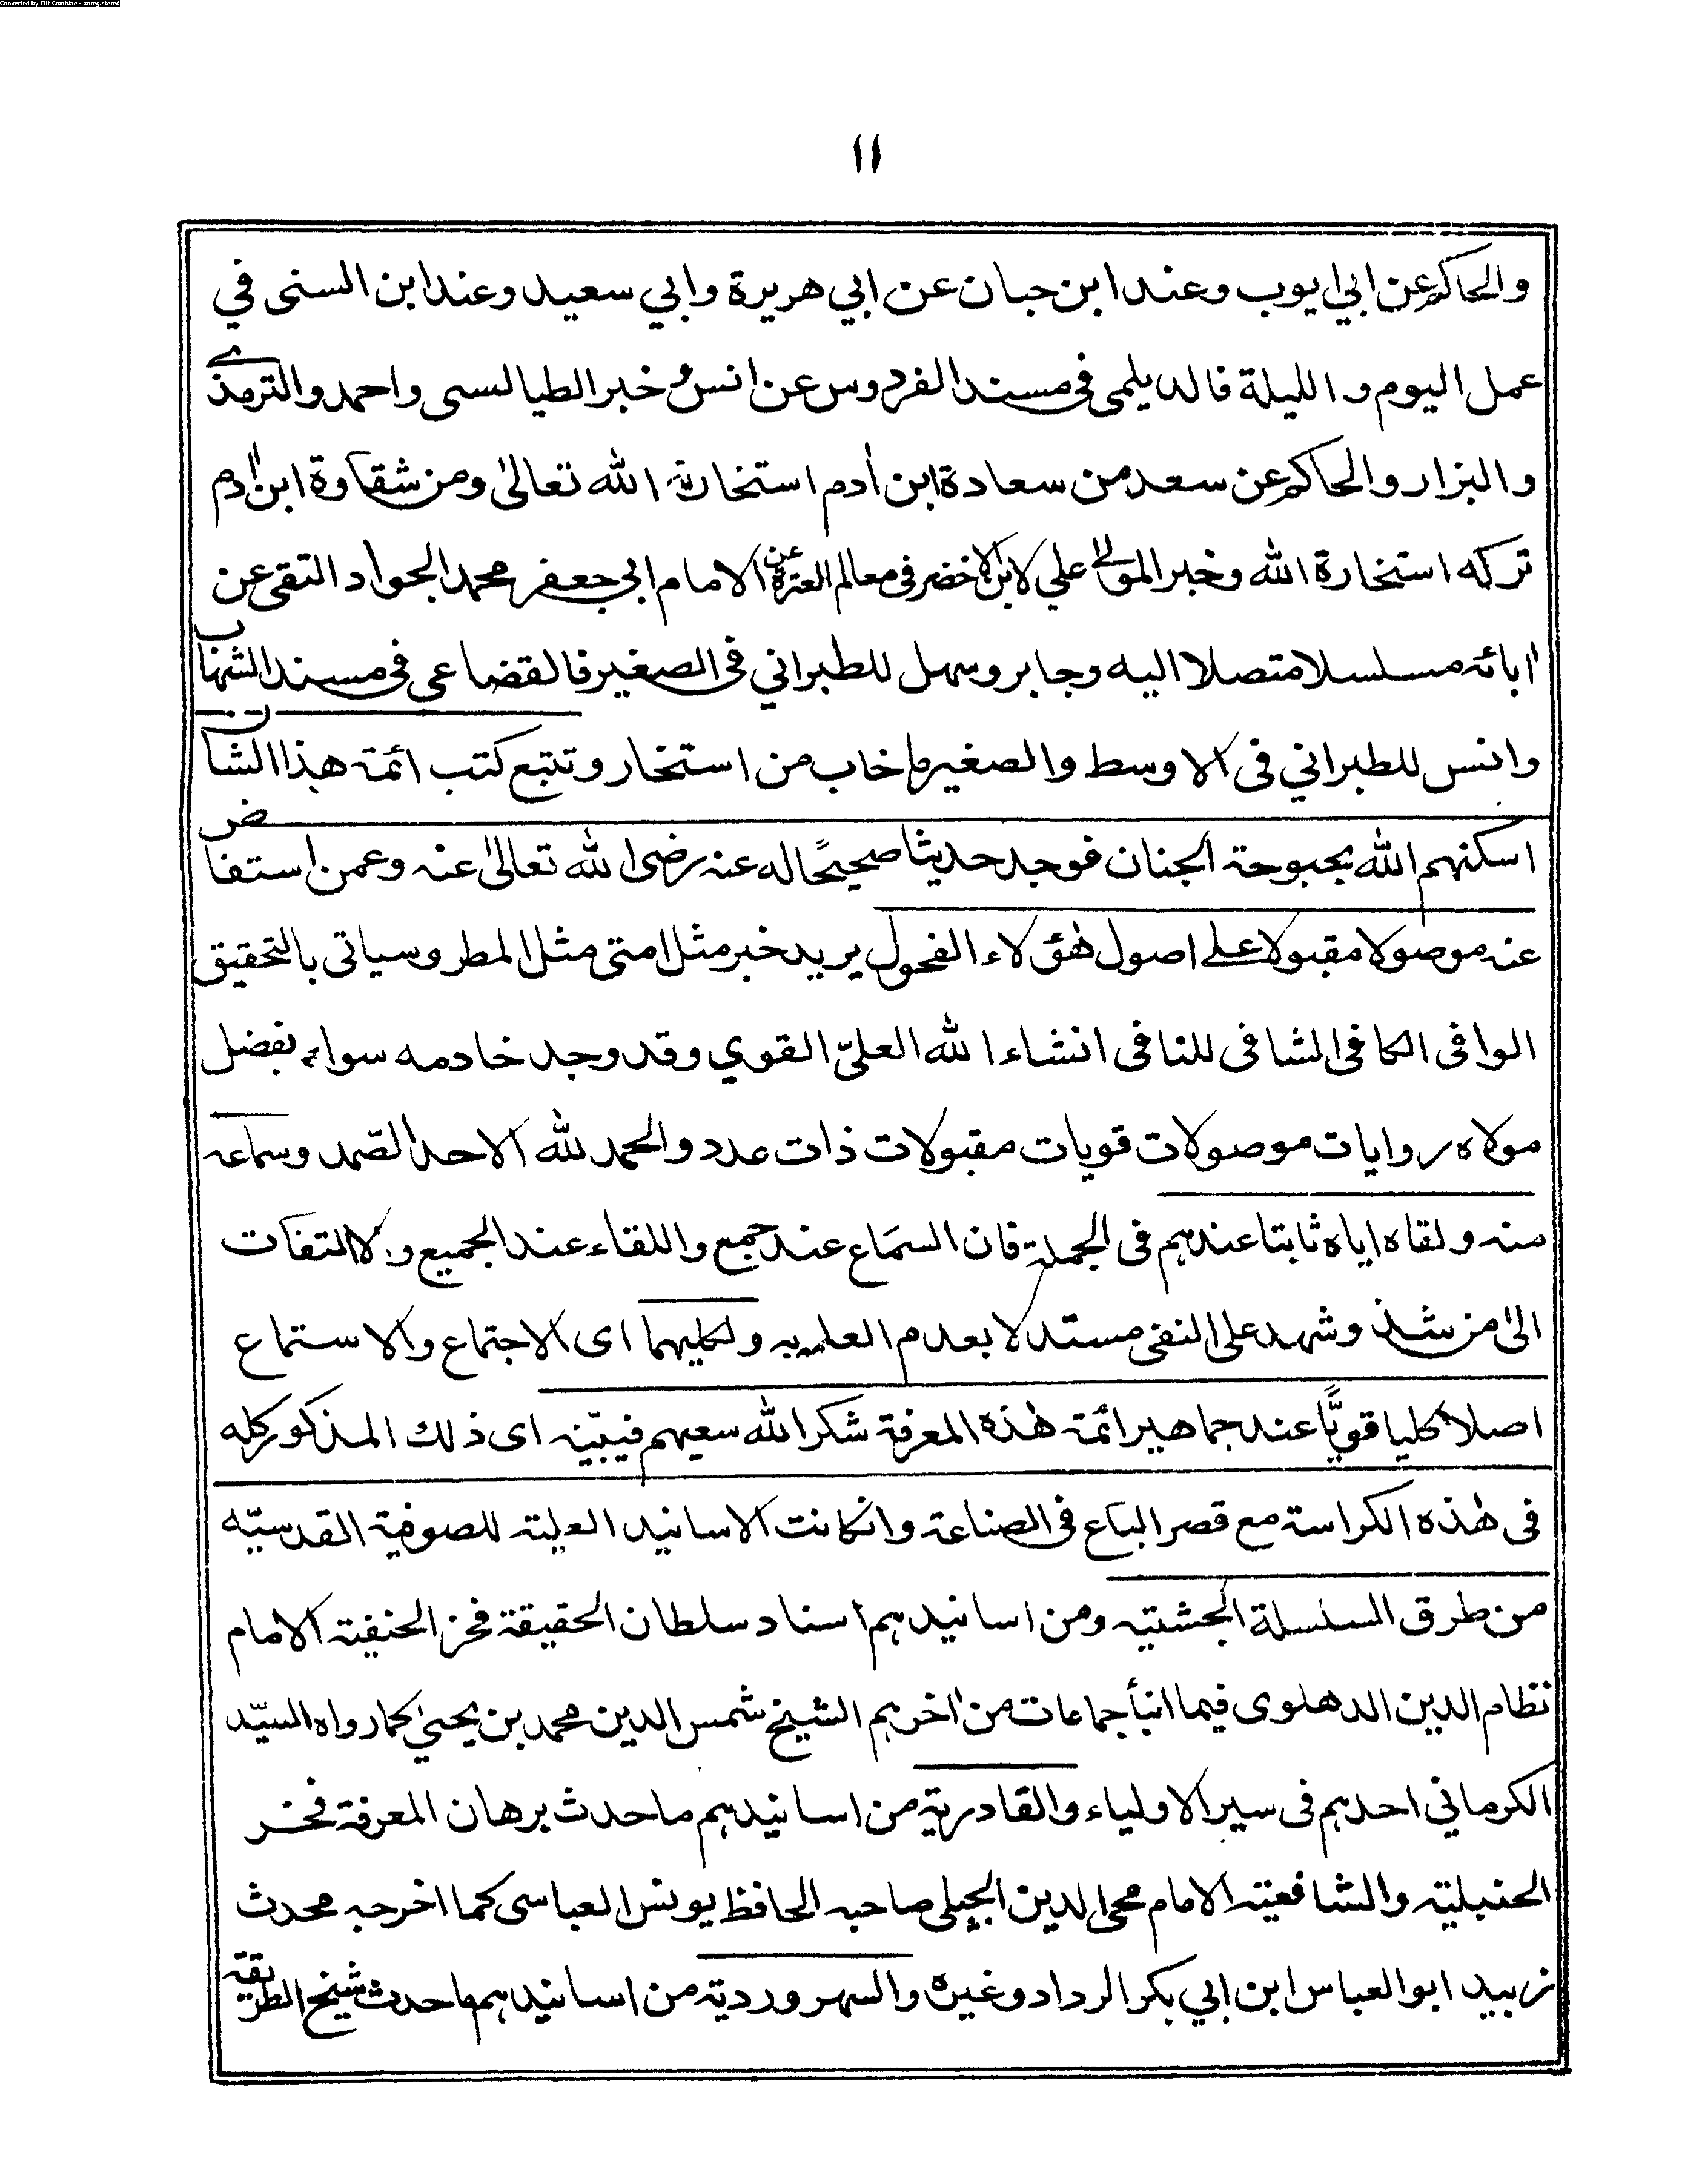 Converted by Tiff Combine - unregistered
١١
والحاكم عن ابي ايوب وعند ابن حبان عن ابي هريرة وابي سعيد وعند ابن السنى في
عمل اليوم والليلة فالديلمى فى مسند الفردوس عن انس وخبر الطيالسى واحمد والترمذي
والبزار والحاكم عن سعد من سعادة ابن اٰدم استخارته الله تعالىٰ ومن شقاوة ابن اٰدم
تركه استخارة الله وخبر المولٰى علي لابن الاخضر فى معالم العترة عن الامام ابي جعفر محمد الجواد التقى عن
اٰبائه مسلسلا متصلا اليه وجابر وسهل للطبراني فى الصغير فالقضاعى فى مسند الشهاب
وانس للطبراني فى الاوسط والصغير ما خاب من استخار وتتبع كتب ائمة هذا الشان
اسكنهم الله بحبوحة الجنان فوجد حديثا صحيحًا له عنه رضى الله تعالىٰ عنه وعمن استفاض
عنه موصولا مقبولا على اصول هٰؤلاء الفحول يريد خبر مثل امتى مثل المطر وسياتى بالتحقيق
الوافى الكافى الشافى للنافى انشاء الله العليّ القوي وقد وجد خادمه سواه بفضل
مولاه روايات موصولات قويات مقبولات ذات عدد والحمد لله الاحد الصّمد وسماعه
منه ولقاه اياه ثابتا عندهم فى الجملة فان السمَاع عند جمع واللقاء عند الجميع ولا التفات
الىٰ من شذ وشهد على النفى مستدلا بعدم العلم به ولكليهما اى الاجتماع والاستماع
اصلا كليا قويًّا عند جماهير ائمة هٰذه المعرفة شكر الله سعيهم فيبيّنه اى ذلك المذكور كله
فى هٰذه الكراسة مع قصر الباع فى الصناعة وانكانت الاسانيد العلية للصوفية القدسيّه
من طرق السلسلة الجشتيه ومن اسانيدهم اسناد سلطان الحقيقة فخر الحنفية الامام
نظام الدين الدهلوى فيما انبأ جماعات من اٰخرهم الشيخ شمس الدين محمد بن يحيىٰ كما رواه السيّد
الكرماني احدهم فى سير الاولياء والقادرية من اسانيدهم ما حدث برهان المعرفة فخر
الحنبلية والشافعية الامام محى الدين الجيلى صاحبه الحافظ يونس العباسى كما اخرجه محدث
زبيد ابو العباس ابن ابي بكر الرداد وغيره والسهروردية من اسانيدهم ما حدث شيخ الطريقة